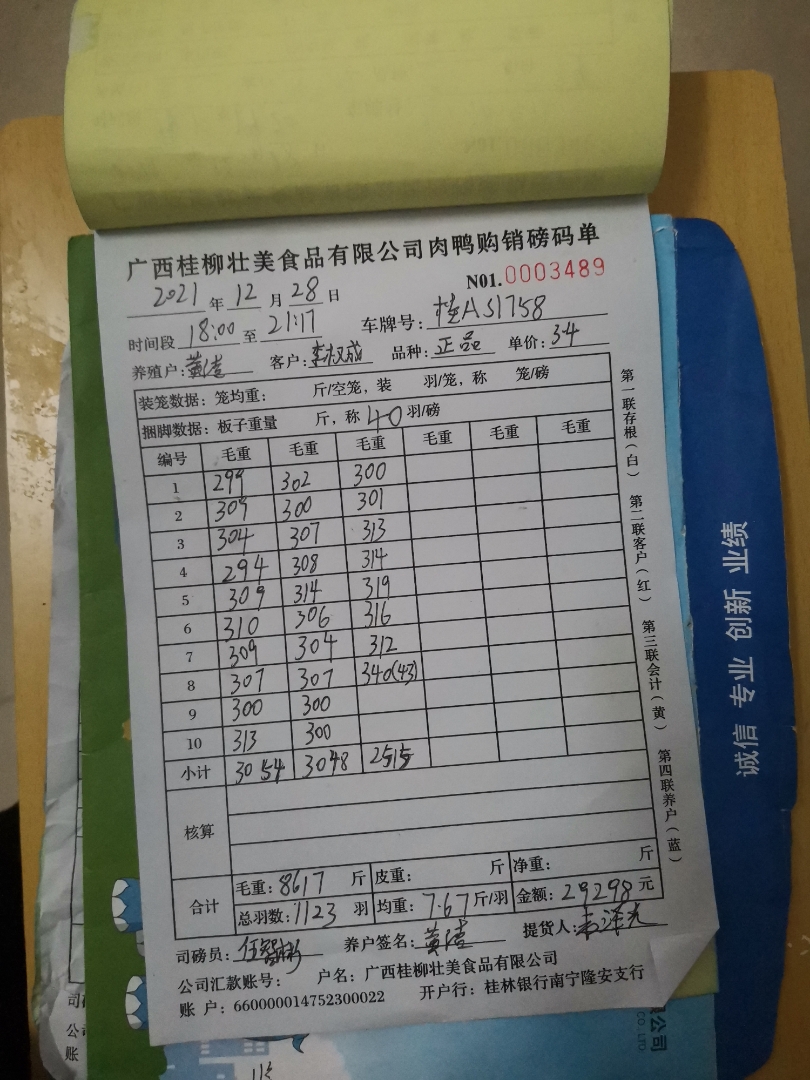 广西桂柳壮美食品有限公司肉鸭购销磅码单
N01.0003489
2021年12月28日
时间段 18:00至21:17 车牌号:桂AS1758
养殖户:黄 客户:李权成 品种:正品 单价:34
装笼数据:笼均重: 斤/空笼,装 羽/笼,称 笼/磅
捆脚数据:板子重量 斤,称40羽/磅
编号 毛重 毛重 毛重 毛重 毛重 毛重
1 299 302 300
2 309 300 301
3 304 307 313
4 294 308 314
5 309 314 319
6 310 306 316
7 309 304 312
8 307 307 340(43)
9 300 300
10 313 300
小计 3054 3048 2515
核算
合计 毛重:8617斤 皮重: 斤 净重: 斤
总羽数:1123羽 均重:7.67斤/羽 金额:29298元
司磅员: 养户签名:黄 提货人:
公司汇款账号: 户名:广西桂柳壮美食品有限公司
账户:660000014752300022 开户行:桂林银行南宁隆安支行
第一联存根(白) 第二联客户(红) 第三联会计(黄) 第四联养户(蓝)
诚信 专业 创新 业绩
限公司
CO.,LTD
司
公
账